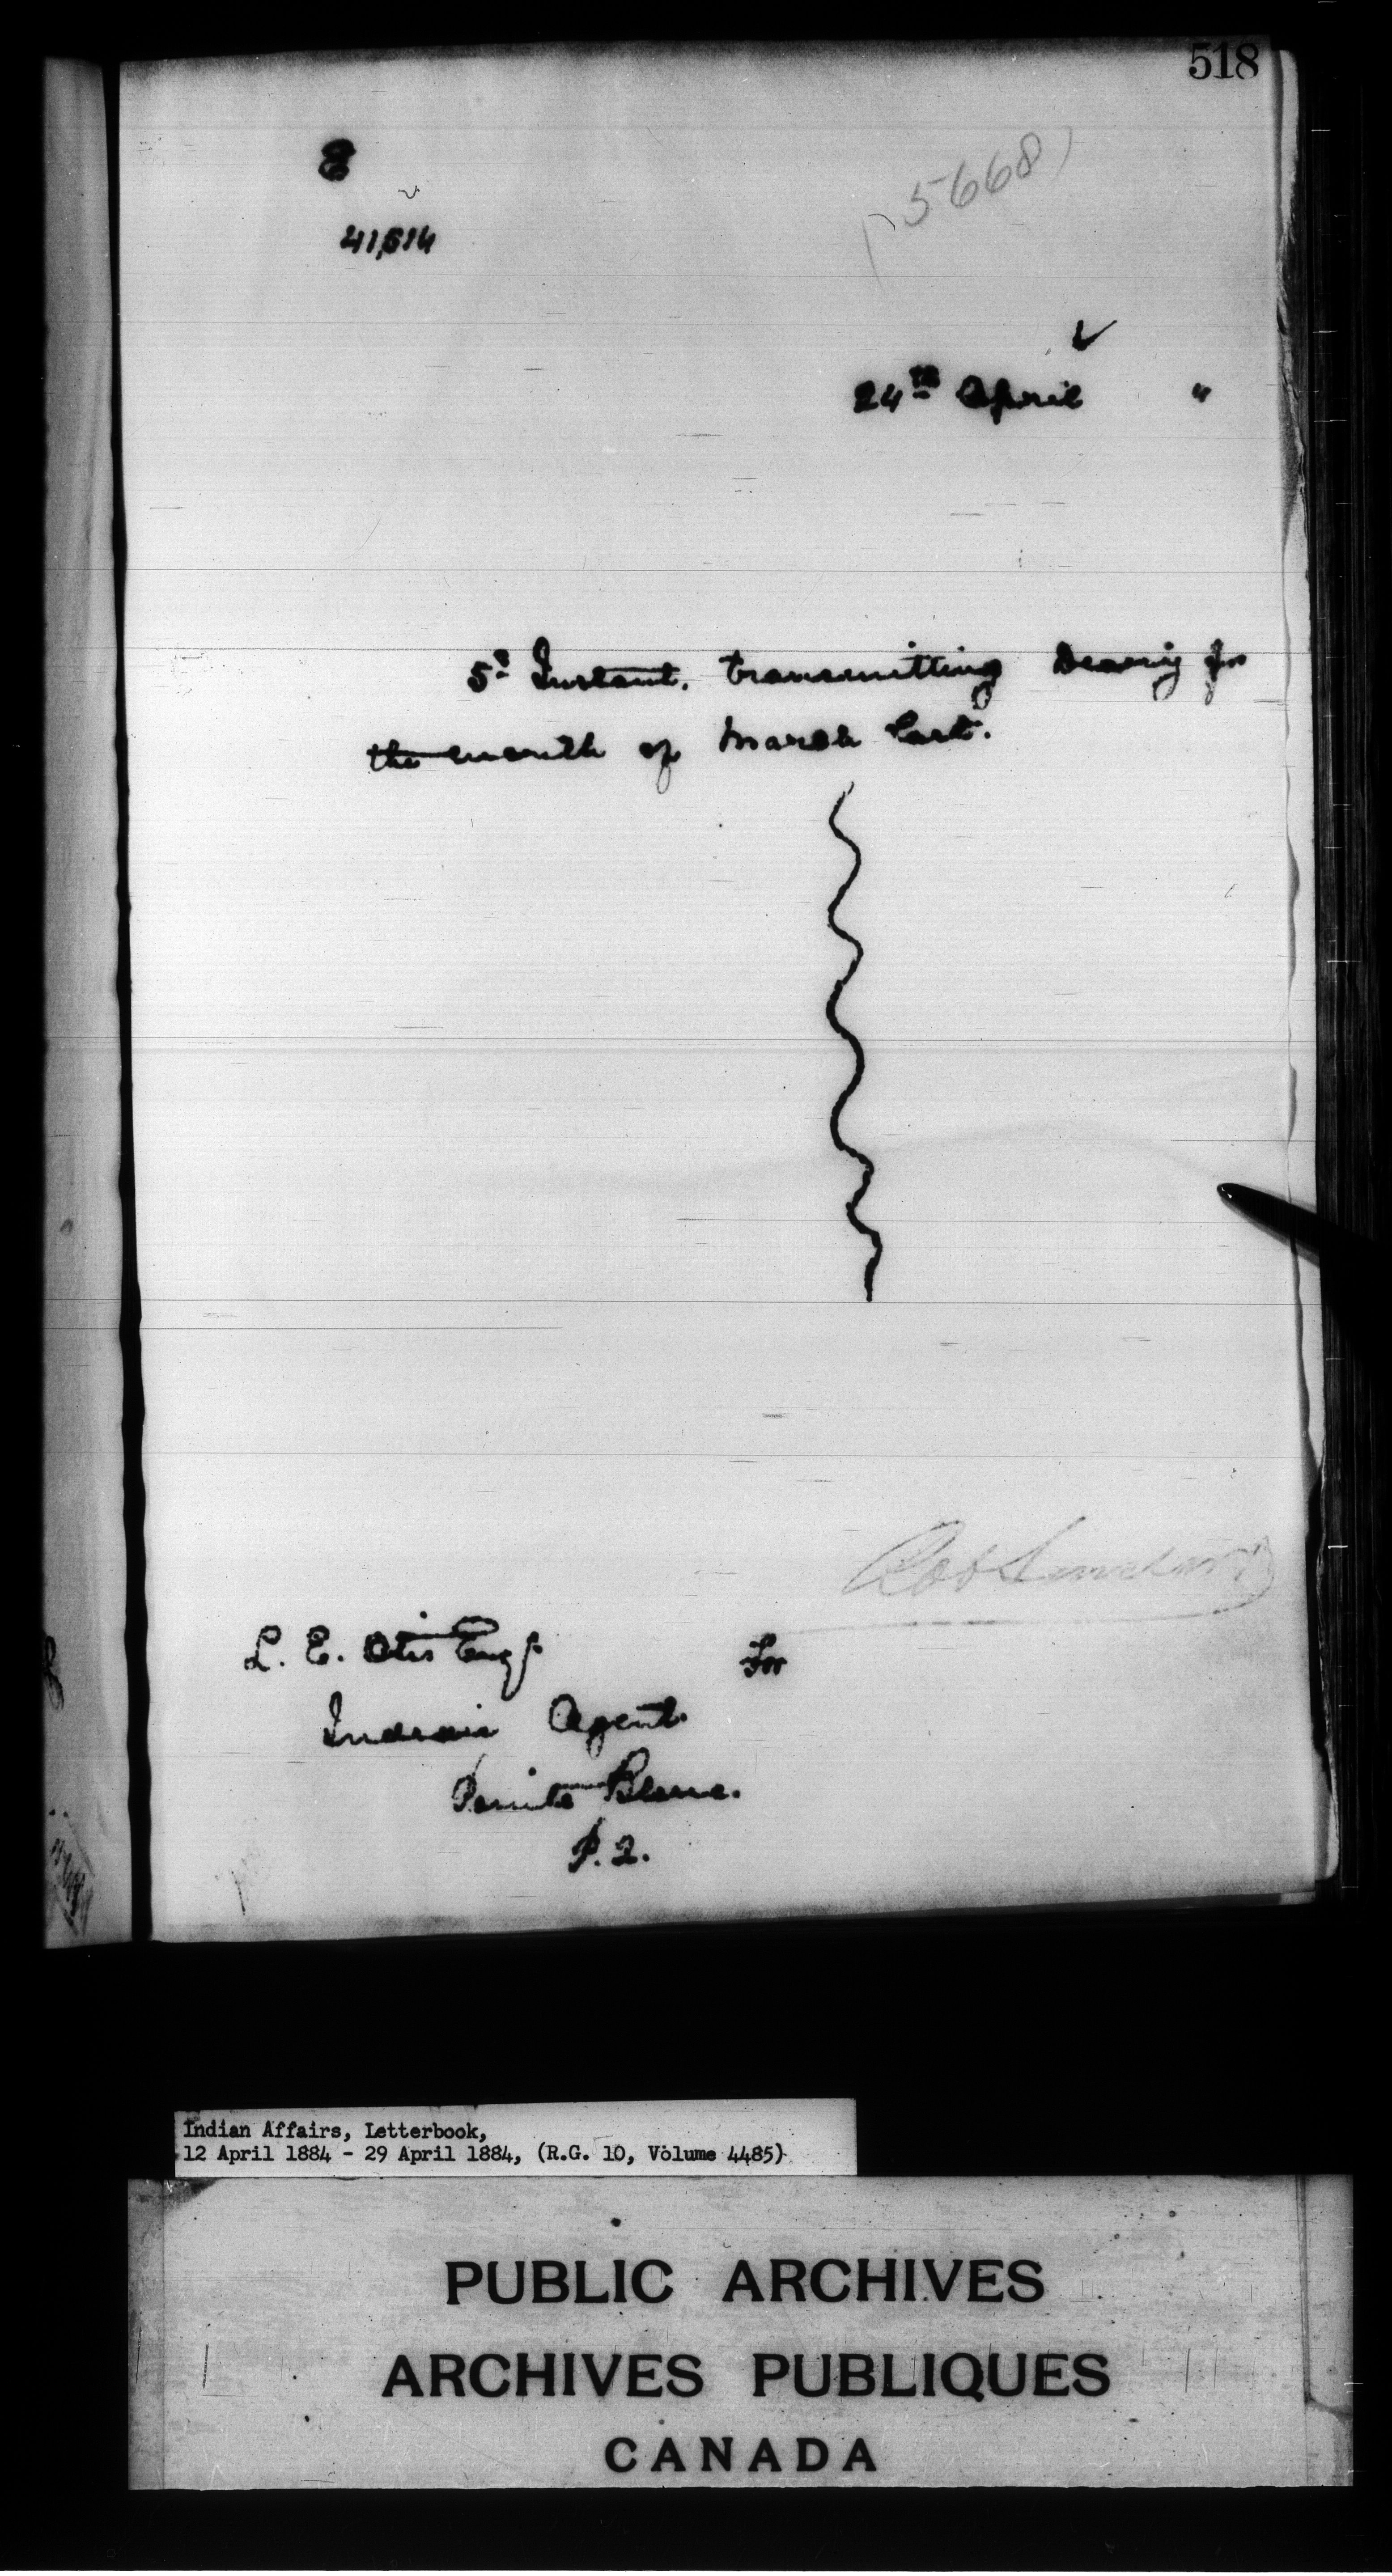 518
E
41,614
(5668)
24th April "
5th Instant, transmitting Diary for
the month of March last.
Rob Sinclair
L. E. Otis Esqr
For
Indian Agent.
Pointe Bleue.
P. Q.
Indian Affairs, Letterbook,
12 April 1884 - 29 April 1884, (R.G. 10, Volume 4485)
PUBLIC ARCHIVES
ARCHIVES PUBLIQUES
CANADA